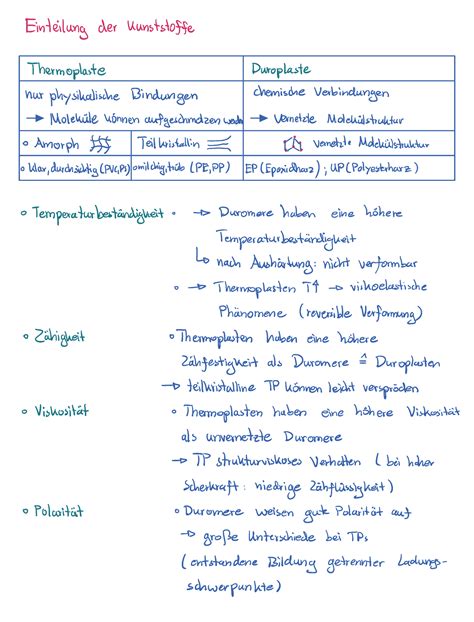 Einteilung der Kunststoffe
Thermoplaste
Duroplaste
nur physikalische Bindungen
→ Moleküle können aufgeschmolzen werden
chemische Verbindungen
→ Vernetzte Molekülstruktur
◦ Amorph
Teilkristallin
vernetzte Molekülstruktur
◦ klar, durchsichtig (PVC, PS)
◦ milchig, trüb (PE, PP)
EP (Epoxidharz) ; UP (Polyesterharz)
◦ Temperaturbeständigkeit
◦ → Duromere haben eine höhere
Temperaturbeständigkeit
↳ nach Aushärtung: nicht verformbar
◦ → Thermoplasten T↑ → viskoelastische
Phänomene (reversible Verformung)
◦ Zähigkeit
◦ Thermoplasten haben eine höhere
Zähfestigkeit als Duromere ≙ Duroplasten
→ teilkristalline TP können leicht verspröden
◦ Viskosität
◦ Thermoplasten haben eine höhere Viskosität
als unvernetzte Duromere
→ TP strukturviskoses Verhalten (bei hoher
Scherkraft: niedrige Zähflüssigkeit)
◦ Polarität
◦ Duromere weisen gute Polarität auf
→ große Unterschiede bei TPs
(entstandene Bildung getrennter Ladungs-
schwerpunkte)